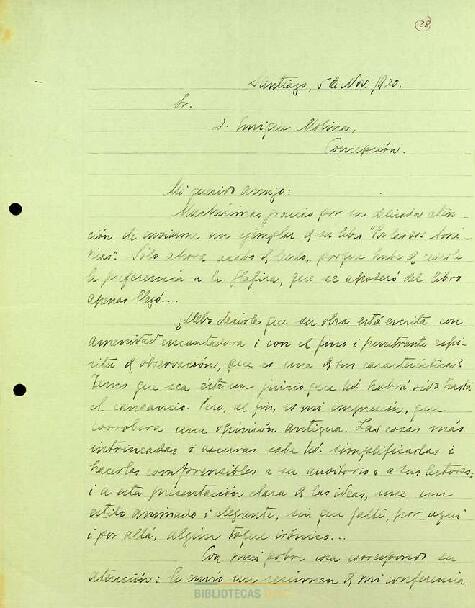 28
Santiago, 5 de Nov. 1920.
Sr.
D. Enrique Molina,
Concepción.
Mi querido amigo:
Muchísimas gracias por su delicada aten-
ción de enviarme un ejemplar de su libro "Por las dos Amé-
ricas". Sólo ahora acabo de leerlo, porque hube de ceder
la preferencia a la que se apoderó del libro
apenas llegó...
Debo decirle que su obra está escrita con
amenidad encantadora i con el fino i penetrante espí-
ritu de observación, que es una de sus características.
Temo que sea éste un juicio que Ud. habrá oído hasta
el cansancio. Pero, al fin, es mi impresión, que
corrobora una opinión antigua. Las cosas más
intrincadas o oscuras sabe Ud. simplificarlas i
hacerlas comprensibles a su auditorio o a sus lectores,
i a esta presentación clara de las ideas, une un
estilo animado i elegante, sin que falte, por aquí
i por allá, algún toque irónico...
Con mui pobre cosa correspondo su
atención: le envío un resumen de mi conferencia
BIBLIOTECAS